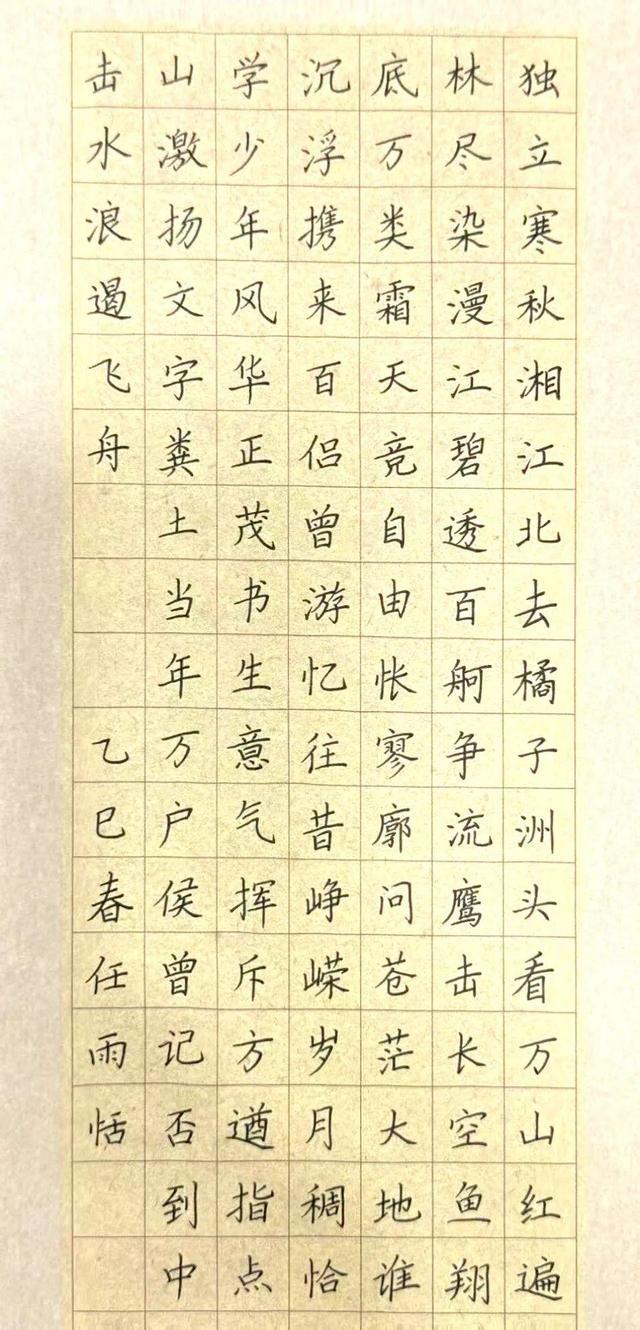 独立寒秋湘江北去橘子洲头看万山红遍
林尽染漫江碧透百舸争流鹰击长空鱼翔
底万类霜天竞自由怅寥廓问苍茫大地谁
沉浮携来百侣曾游忆往昔峥嵘岁月稠恰
学少年风华正茂书生意气挥斥方遒指点
山激扬文字粪土当年万户侯曾记否到中
击水浪遏飞舟
乙巳春任雨恬